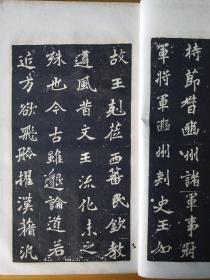 持節督幽州諸軍事冠
軍將軍幽州刺史王如
故王剋莅西蕃民欽教
遵風昔文王流化未之
殊也今古雖邈論道若
追方欲飛聆擢漢藉汎